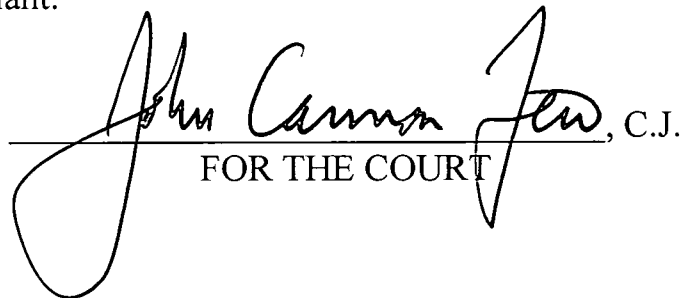 John Cannon Few, C.J.
FOR THE COURT